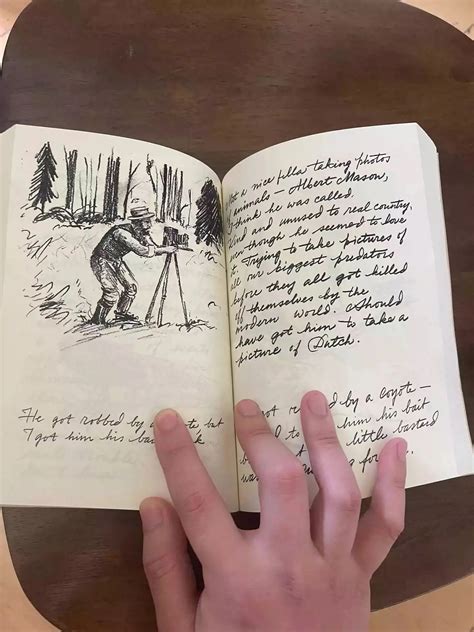 He got robbed by a te but
I got him his ba k
t a nice fella taking photos
animals – Albert Mason,
think he was called.
Kind and unused to real country,
even though he seemed to love
it. Trying to take pictures of
all our biggest predators
before they all got killed
off themselves by the
modern world. Should
have got him to take a
picture of Dutch.
got ro d by a coyote –
b d to him his bait
b t little bastard
wa fo